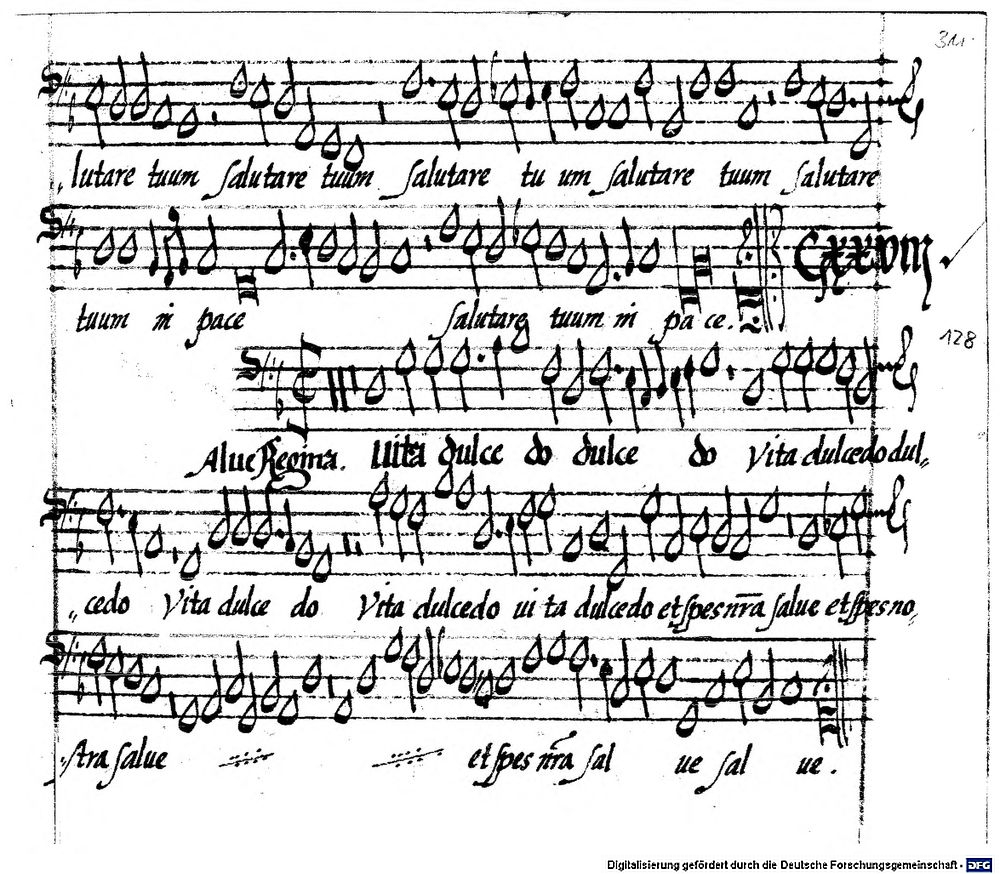 311.
lutare tuum salutare tuum salutare tu um salutare tuum salutare
tuum in pace salutare tuum in pa ce. CXXVIII.
128
Alue Regina. Uita dulce do dulce do Vita dulcedo dul„
„cedo Vita dulce do Vita dulcedo ui ta dulcedo et spes nr̄a salue et spes no„
stra salue et spes nr̄a sal ue sal ue.
Digitalisierung gefördert durch die Deutsche Forschungsgemeinschaft - DFG